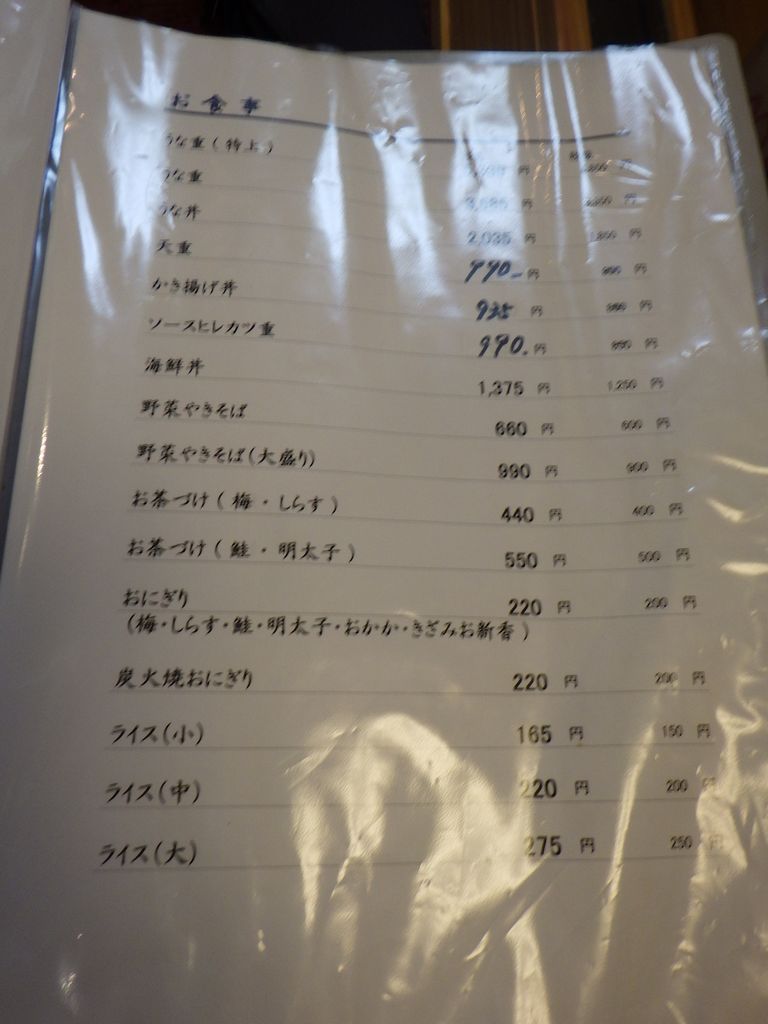 お食事
うな重(特上) 円 円
うな重 円 円
うな丼 2,035 円 円
天重 990- 円 円
かき揚げ丼 935 円 円
ソースヒレカツ重 990. 円 円
海鮮丼 1,375 円 1,250 円
野菜やきそば 660 円 600 円
野菜やきそば(大盛り) 990 円 900 円
お茶づけ(梅・しらす) 440 円 400 円
お茶づけ(鮭・明太子) 550 円 500 円
おにぎり 220 円 200 円
(梅・しらす・鮭・明太子・おかか・きざみお新香)
炭火焼おにぎり 220 円 200 円
ライス(小) 165 円 150 円
ライス(中) 220 円 200 円
ライス(大) 275 円 250 円